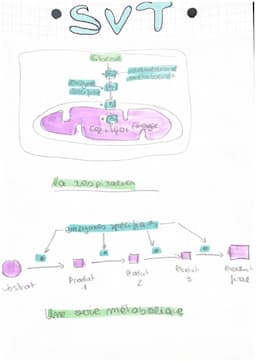 SVT
Glucose
enzyme
CO₂ + H₂O + énergie
la respiration
enzymes spécifiques
substrat
Produit
1
Produit
2
Produit
3
Produit
final
Une voie métabolique